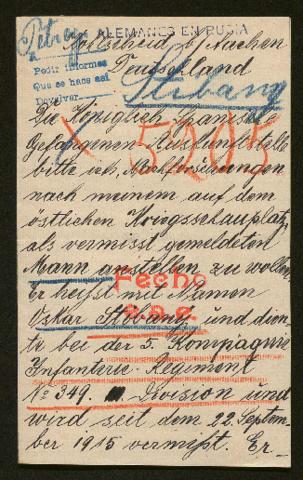 ALEMANES EN RUSIA
Kohlscheid b/Aachen
Pedir informes
Deutschland
Que se haga así
Stibane
Devolver
Die Königlich Spanische
5205
Gefangenen Auskunftstelle
bitte ich, Nachforschungen
nach meinem auf dem
östlichen Kriegsschauplatz
als vermisst gemeldeten
Mann anstellen zu wollen
Fecho
Er heisst mit Namen
Oskar und dien-
te bei der 5. Kompagnie
Infanterie-Regiment
No 349. Division und
wird seit dem 22. Septem-
ber 1915 vermisst. Er-